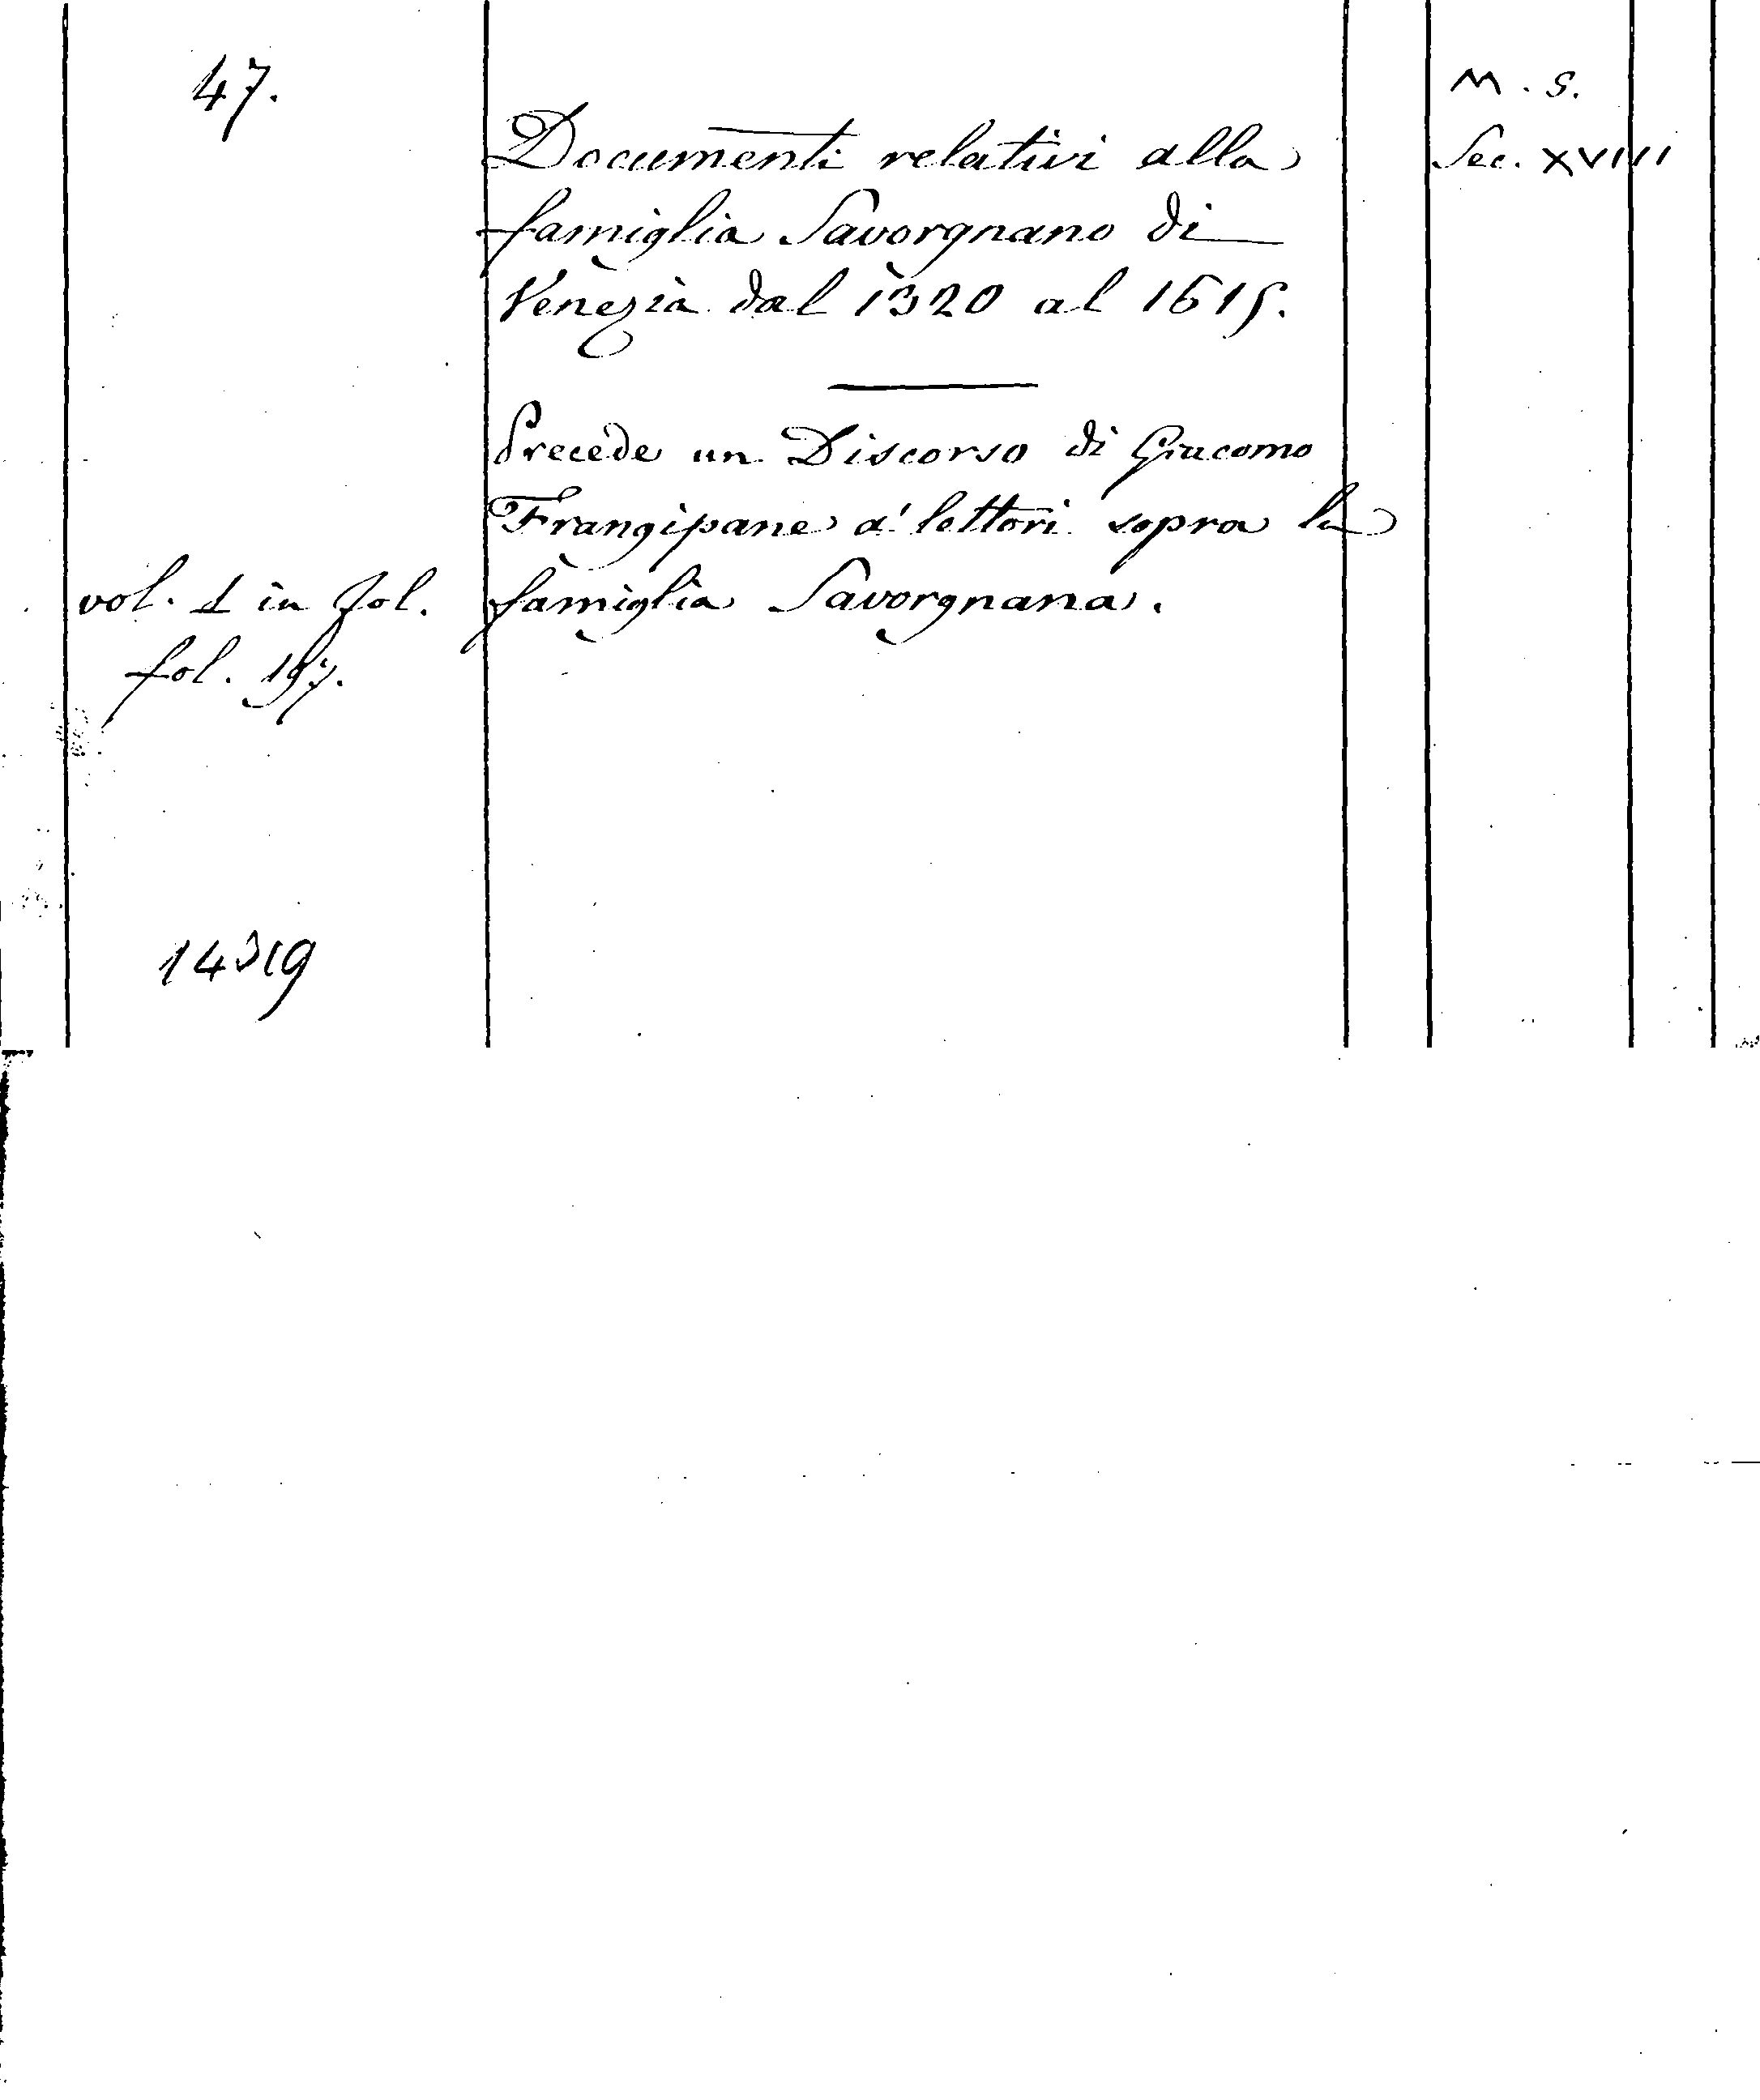 47.
M. S.
Documenti relativi alla
Sec. XVIIII
famiglia Savorgnano di
Venezia dal 1320 al 1615.
Precede un Discorso di Giacomo
Frangipane a' lettori sopra la
famiglia Savorgnana.
vol. 1 in fol.
fol. 197.
14319